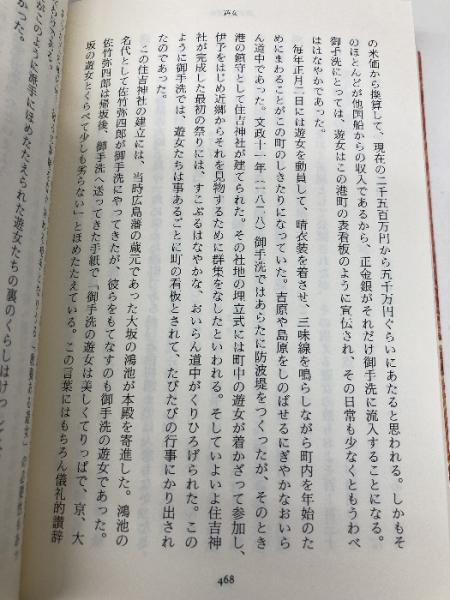 遊女
の米価から換算して、現在の二千五百万円から五千万円ぐらいにあたると思われる。しかもそ
のほとんどが他国船からの収入であるから、正金銀がそれだけ御手洗に流入することになる。
御手洗にとっては、遊女はこの港町の表看板のように宣伝され、その日常も少なくともうわべ
ははなやかであった。
毎年正月二日には遊女を動員して、晴衣装を着させ、三味線を鳴らしながら町内を年始のた
めにまわることがこの町のしきたりになっていた。吉原や島原をしのばせるにぎやかなおいら
ん道中であった。文政十一年(一八二八)御手洗ではあらたに防波堤をつくったが、そのとき
港の鎮守として住吉神社が建てられた。その社地の埋立式には町中の遊女が着かざって参加し、
伊予をはじめ近郷からそれを見物するために群集をなしたといわれる。そしていよいよ住吉神
社が完成した最初の祭りには、すこぶるはなやかな、おいらん道中がくりひろげられた。この
ように御手洗では、遊女たちは事あるごとに町の看板とされて、たびたびの行事にかり出され
たのであった。
この住吉神社の建立には、当時広島藩の蔵元であった大坂の鴻池が本殿を寄進した。鴻池の
名代として佐竹弥四郎が御手洗にやってきたが、彼らをもてなすのも御手洗の遊女であった。
佐竹弥四郎は帰坂後、御手洗へ送ってきた手紙で「御手洗の遊女は美しくてりっぱで、京、大
坂の遊女とくらべて少しも劣らない」とほめたたえている。この言葉にはもちろん儀礼的讃辞
468
がこのように派手にほめたたえられた遊女たちの裏のくらしはけっして